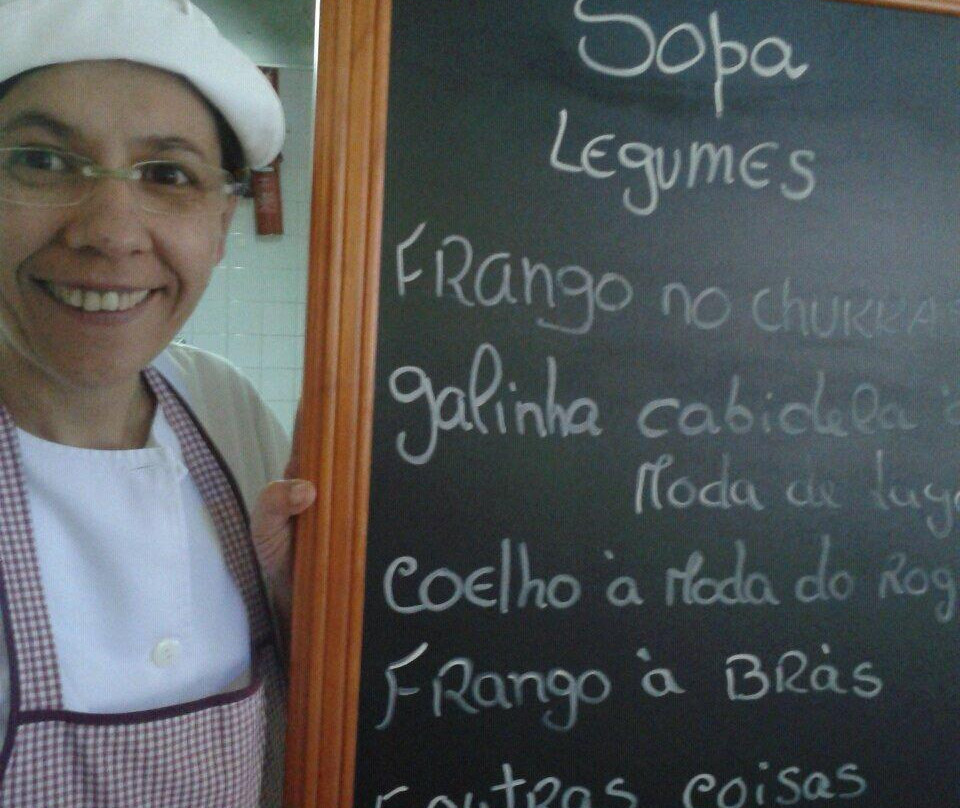 Sopa
LEGUMES
FRango no CHURRAS
galinha cabidela à
Moda de
COElho à Moda do Rog
FRango à BRàs
E outRas coisas